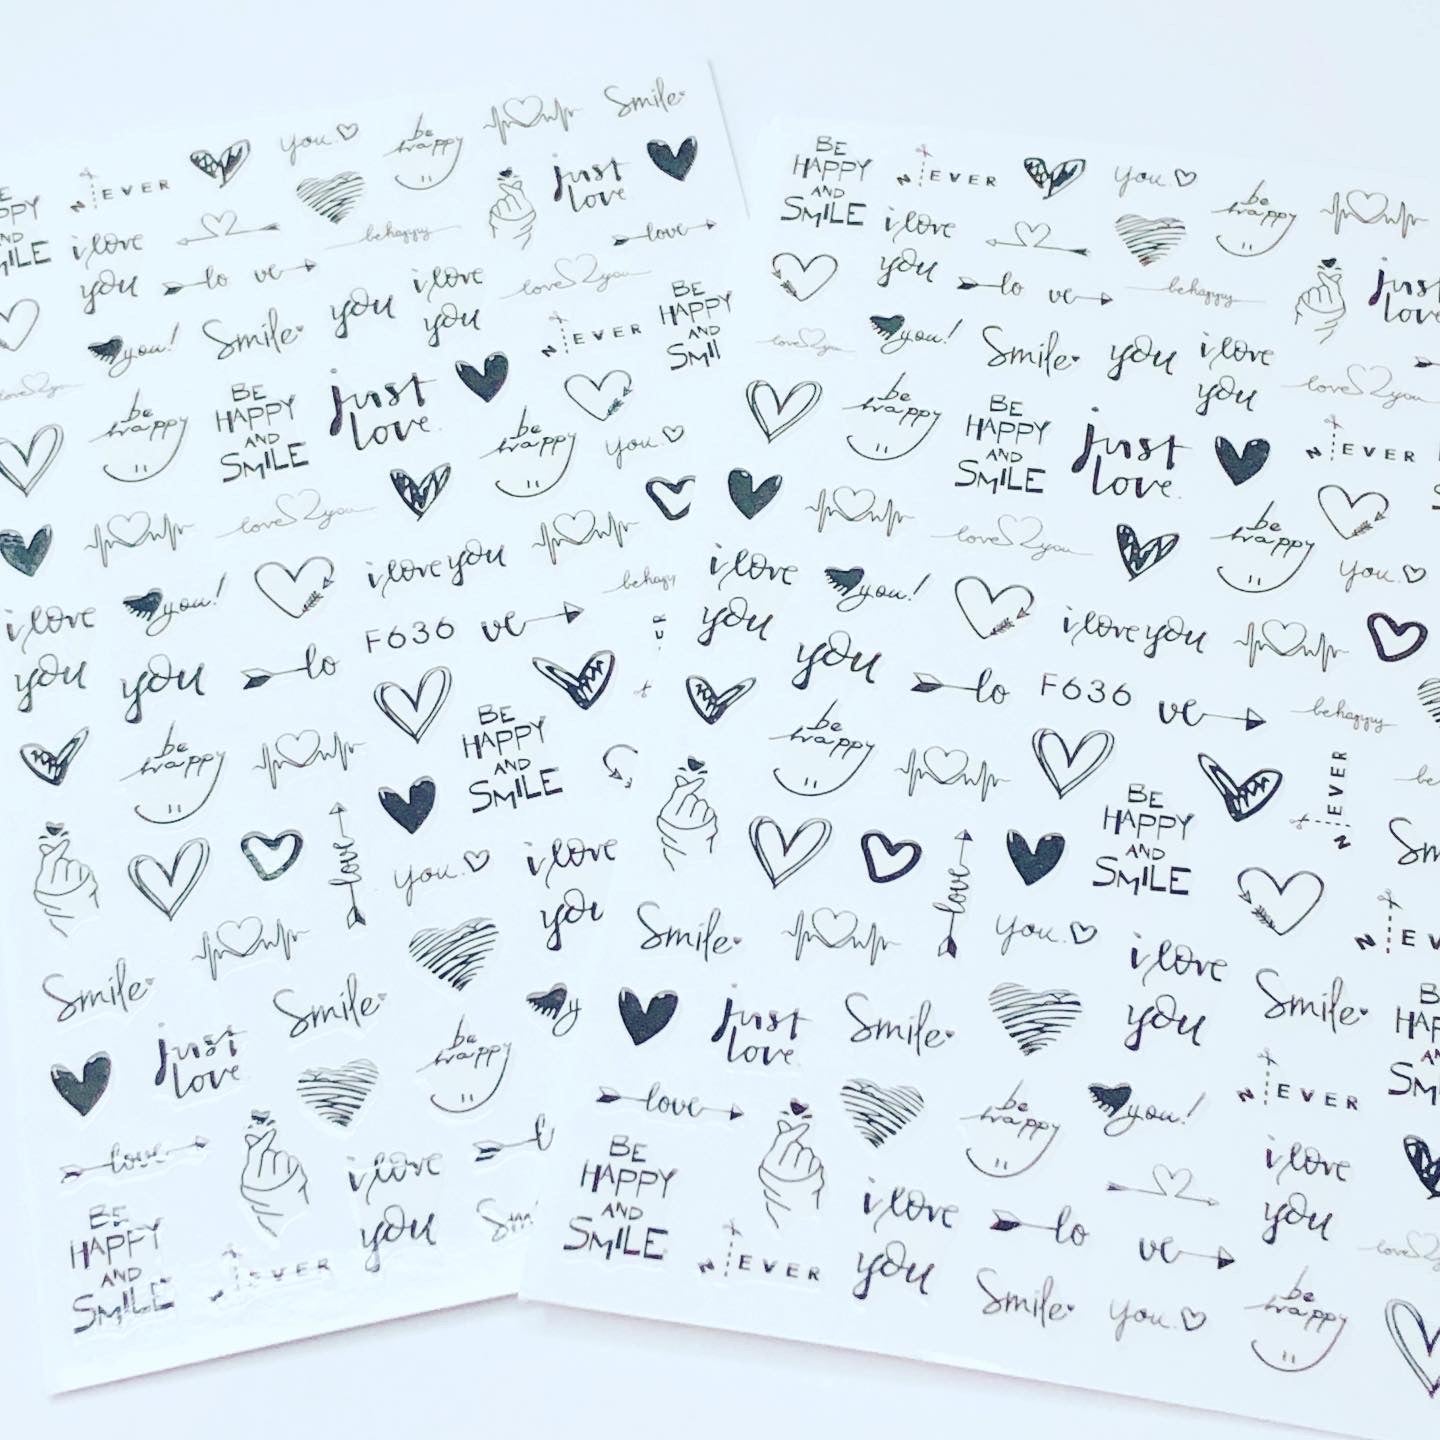 Smile
you.
be happy
just love
N EVER
BE HAPPY AND SMILE
i love you
behappy
love
lo ve
love you
you!
Smile
you
i love you
love you
N EVER
BE HAPPY AND
be happy
BE HAPPY AND SMILE
just love.
be happy
you.
love you
i love you
you!
i love you
behappy
F636
lo
ve
you
be happy
BE HAPPY AND SMILE
love
you.
i love
Smile
Smile
just love
be happy
love
i love you
BE HAPPY AND SMILE
N EVER
BE HAPPY AND SMILE
N EVER
you.
be happy
i love you
lo ve
behappy
just love
love you
you!
Smile
you
i love you
love you
be happy
BE HAPPY AND SMILE
just love.
N EVER
love you
be happy
you.
i love you
you!
i love you
you
lo
F636
ve
behappy
be happy
BE HAPPY AND SMILE
N EVER
love
Smile
you.
i love you
N EV
just love
Smile
Smile
love
be happy
you!
N EVER
BE HAPPY AND SMILE
i love you
i love you
lo
ve
N EVER
Smile
you.
be happy